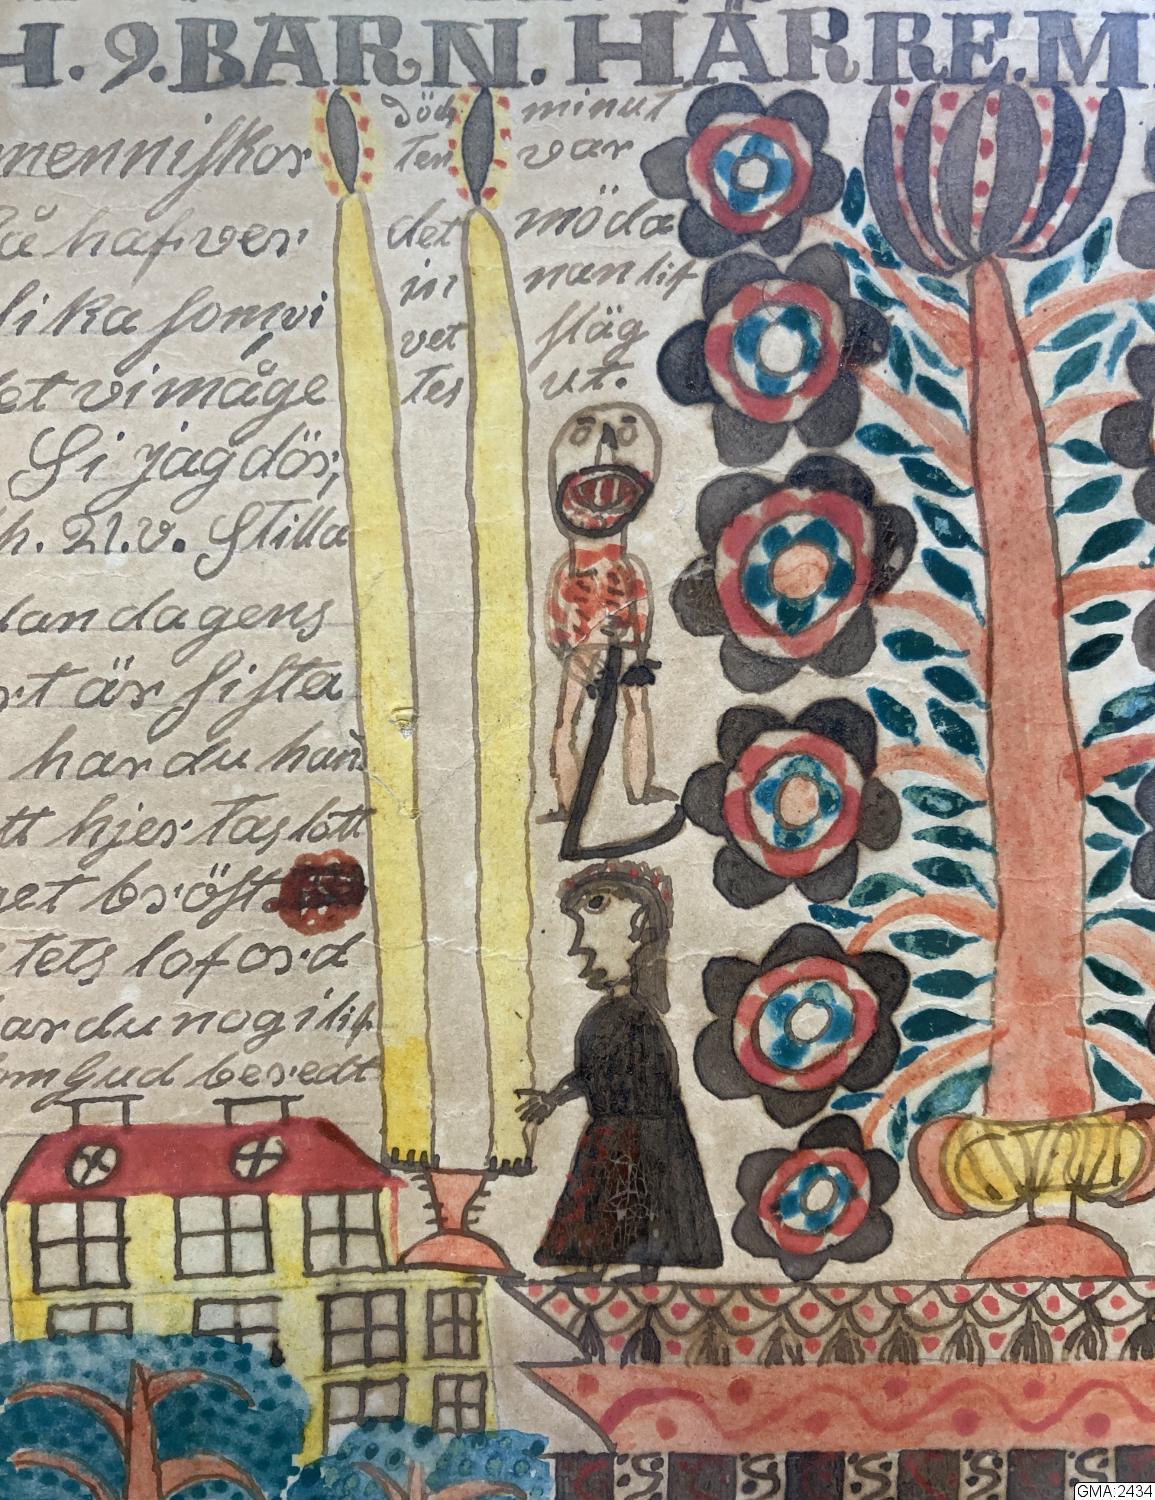 H. 9. BARN. HÄRRE. M
menniskor
så hafver
lika som vi
et vi måge
Si jag dör,
h. 21. v. Stilla
dan dagens
rt är sista
har du han
tt hjertas lott
et bröst
tets lof ord
ar du nog i lif
om Gud beredt
död minut
ten var
det möda
in nan lif
vet släg
tes ut.
S S S S S
GMA:2434